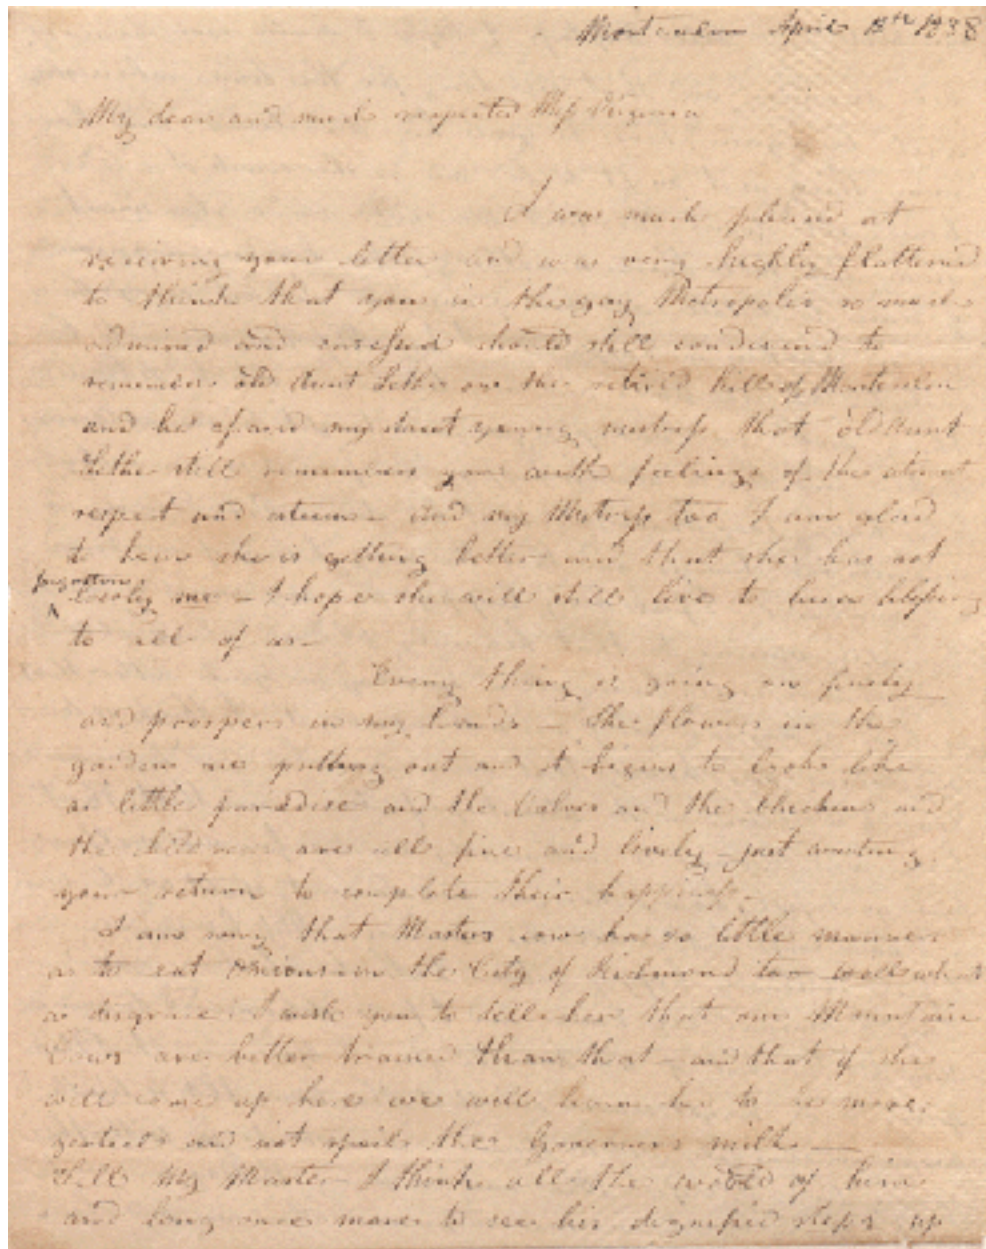 Montcalm April 18th 1838
My dear and much respected Miss Virginia
I was much pleased at
receiving your letter and was very highly flattered
to think that you in the gay Metropolis so much
admired and caressed should still condescend to
remember old Aunt Lethe on the retired hill of Montcalm
and be assured my sweet young mistress that old Aunt
Lethe still remembers you with feelings of the utmost
respect and esteem – And my Mistress too I am glad
to hear she is getting better and that she has not
forgotten
lowly me – I hope she will still live to be a blessing
to all of us –
Every thing is going on finely
and prospers in my hands – The flowers in the
garden are putting out and it begins to look like
a little paradise and the Calves and the Chickens and
the children are all fine and lively – just awaiting
your return to complete their happiness –
I am sorry that Masters cow has so little manners
as to eat Onions – in the City of Richmond too – well what
a disgrace! I wish you to tell her that our Mountain
Cows are better trained than that – and that if she
will come up here we will learn her to be more
genteel and not spoil the Governors milk –
Tell My Master I think all the world of him
and long once more to see his dignified steps up